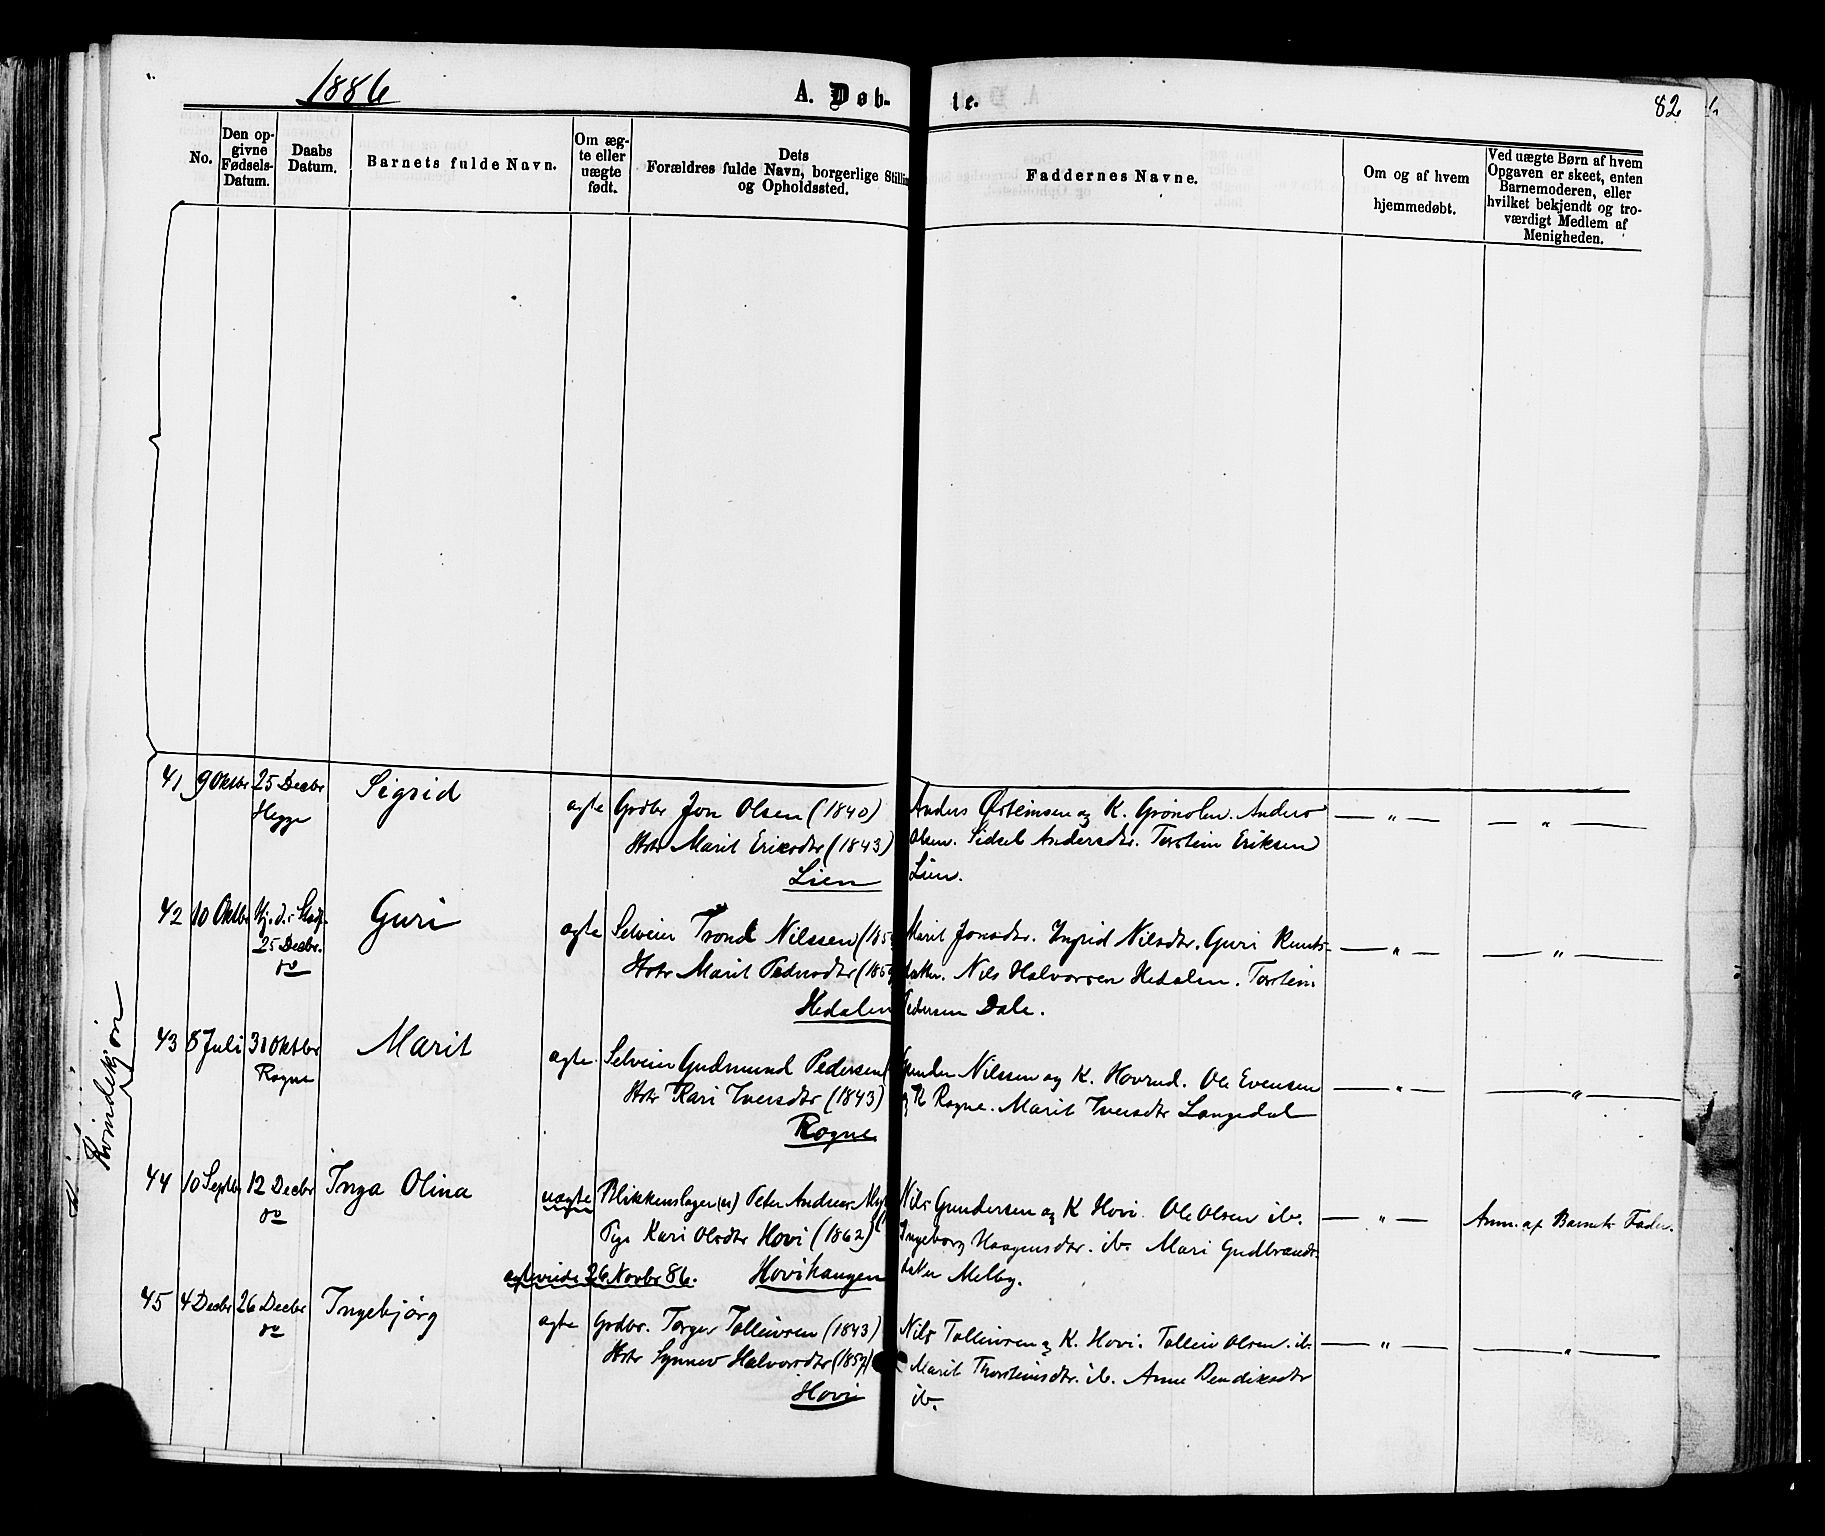 1886
A. Døb-
te.
82
No.
Den op-
givne
Fødsels-
Datum.
Daabs
Datum.
Barnets fulde Navn.
Om æg-
te eller
uægte
født.
Dets
Forældres fulde Navn, borgerlige Stillin
og Opholdssted.
Faddernes Navne.
Om og af hvem
hjemmedøbt.
Ved uægte Børn af hvem
Opgaven er skeet, enten
Barnemoderen, eller
hvilket bekjendt og tro-
værdigt Medlem af
Menigheden.
Kvindekjøn
41 9 Oktbr 25 Decbr Sigrid ægte Grdbr Jon Olsen (1840) Anders Østeinsen og K. Grønolen. Anders — " — — " —
Hegge Hstr Marit Eriksdtr (1843) Olsen. Sidsel Andersdtr. Torstein Eriksen
Lien Lien.
42 10 Oktbr Guri ægte Selveier Trond Nilssen (185 Marit Jonsdtr. Ingrid Nilsdtr. Guri Knuts- — " — — " —
25 Decbr. Hstr Marit Pedersdtr (185 datter. Nils Halvorsen Hedalen. Torstein
do Hedalen Pedersen Dale.
43 8 Juli 31 Oktbr Marit ægte Selveier Gudmund Pedersen ( Gunder Nilssen og K. Hovrud. Ole Evensen — " — — " —
Rogne Hstr Kari Iversdtr (1843) og K Rogne. Marit Iversdtr Langedal
Rogne
44 10 Septbr 12 Decbr Inga Olina uægte Blikkenslager Peter Andreas Nils Gundersen og K Hovi. Ole Olsen ib. — " — Anm. af Barnets Fader.
do Pige Kari Olsdtr Hovi (1862) Ingeborg Haagensdtr. ib. Mari Gudbrands-
ægteviede 26 Novbr 86. Hovihaugen datter Melby.
45 4 Decbr 26 Decbr Ingebjørg ægte Grdbr. Torger Tolleivsen (1843) Nils Tolleivsen og K. Hovi. Tolleiv Olsen. ib. — " — — " —
do Hstr Synnev Halvorsdtr (1857) Marit Thorsteinsdtr. ib. Anne Bendiksdtr
Hovi ib.